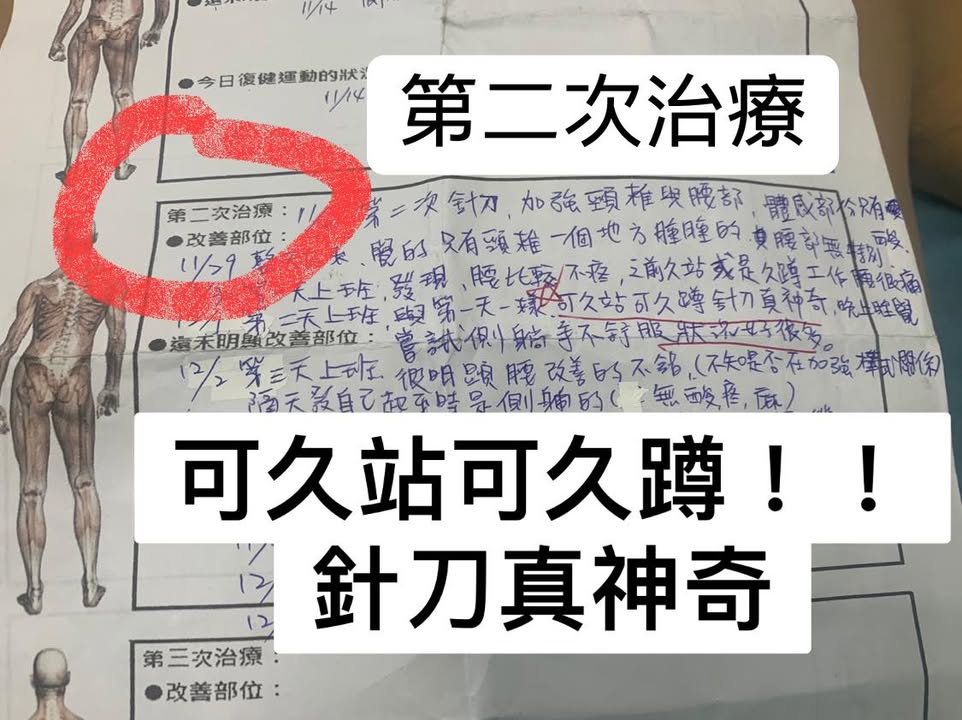 11/14
●今日復健運動的狀況
11/14
第二次治療
第二次治療：11 第二次針刀，加強頸椎與腰部，體感部份只有酸、
●改善部位：
11/29 覺的只有頸椎一個地方腫腫的，腰部無
天上班，發現，腰比較不疼，之前久站或是久蹲工作腰很痛
第二天上班，與第一天一樣，可久站可久蹲針刀真神奇，晚上睡覺
●還未明顯改善部位：嘗試側躺手不舒服狀況好很多。
12/2 第三天上班 很明顯腰改善的不錯，(不知是否在加強 關係)
隔天發自己起來時是側躺的( 無酸，疼，麻)
可久站可久蹲！！
針刀真神奇
12/
12
第三次治療：
●改善部位：